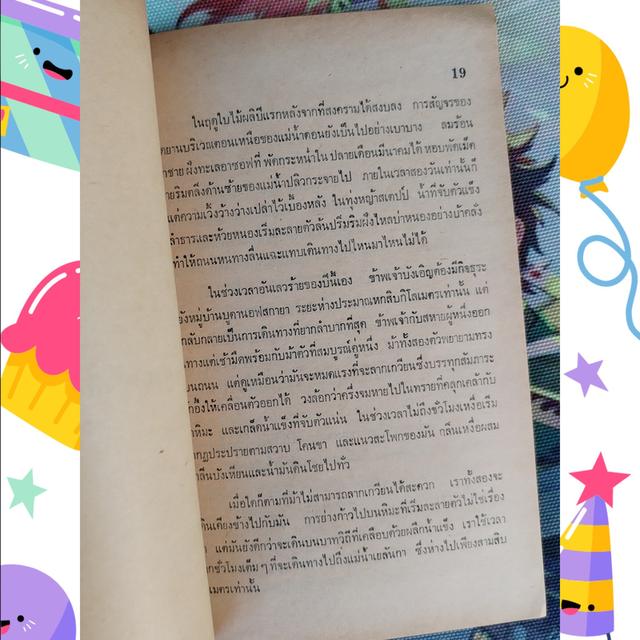 19
ในฤดูใบไม้ผลิปีแรกหลังจากที่สงครามได้สงบลง การสัญจรของ
ดยานบริเวณตอนเหนือของแม่น้ำดอนยังเป็นไปอย่างเบาบาง ลมร้อน
าชาย ฝั่งทะเลอาซอฟที่ พัดกระหน่ำใน ปลายเดือนมีนาคมได้ หอบพัดเม็ด
ายริมตลิ่งด้านซ้ายของแม่น้ำปลิวกระจายไป ภายในเวลาสองวันเท่านั้นก็
แต่ความเวิ้งว้างว่างเปล่าไว้เบื้องหลัง ในทุ่งหญ้าสเตปป์ น้ำที่จับตัวแข็ง
ลำธารและห้วยหนองเริ่มละลายตัวล้นปริ่มริมฝั่งไหลบ่าหนองอย่างบ้าคลั่ง
ทำให้ถนนหนทางลื่นแฉะแทบเดินทางไปไหนมาไหนไม่ได้
ในช่วงเวลาอันเลวร้ายของปีนี้เอง ข้าพเจ้าบังเอิญต้องมีกิจธุระ
ยังหมู่บ้านบูคานอฟสกายา ระยะห่างประมาณหกสิบกิโลเมตรเท่านั้น แต่
กลับกลายเป็นการเดินทางที่ยากลำบากที่สุด ข้าพเจ้ากับสหายผู้หนึ่งออก
ทางแต่เช้ามืดพร้อมกับม้าตัวที่สมบูรณ์คู่หนึ่ง ม้าทั้งสองตัวพยายามทรง
บนถนน แต่ดูเหมือนว่ามันจะหมดแรงที่จะลากเกวียนซึ่งบรรทุกสัมภาระ
ให้เคลื่อนตัวออกได้ วงล้อกว่าครึ่งจมหายไปในทรายที่คลุกเคล้ากับ
หิมะ และเกล็ดน้ำแข็งที่จับตัวแน่น ในช่วงเวลาไม่ถึงชั่วโมงเหงื่อเริ่ม
ากฏประปรายตามสวาบ โคนขา และแนวสะโพกของมัน กลิ่นเหงื่อผสม
ลิ่นบังเหียนและน้ำมันดินโชยไปทั่ว
เมื่อใดก็ตามที่ม้าไม่สามารถลากเกวียนได้สะดวก เราทั้งสองจะ
นเคียงข้างไปกับมัน การย่างก้าวไปบนหิมะที่เริ่มละลายตัวไม่ใช่เรื่อง
แต่มันยังดีกว่าจะเดินบนบาทวิถีที่เคลือบด้วยผลึกน้ำแข็ง เราใช้เวลา
กชั่วโมงเต็มๆ ที่จะเดินทางไปถึงแม่น้ำเยลันกา ซึ่งห่างไปเพียงสามสิบ
เมตรเท่านั้น